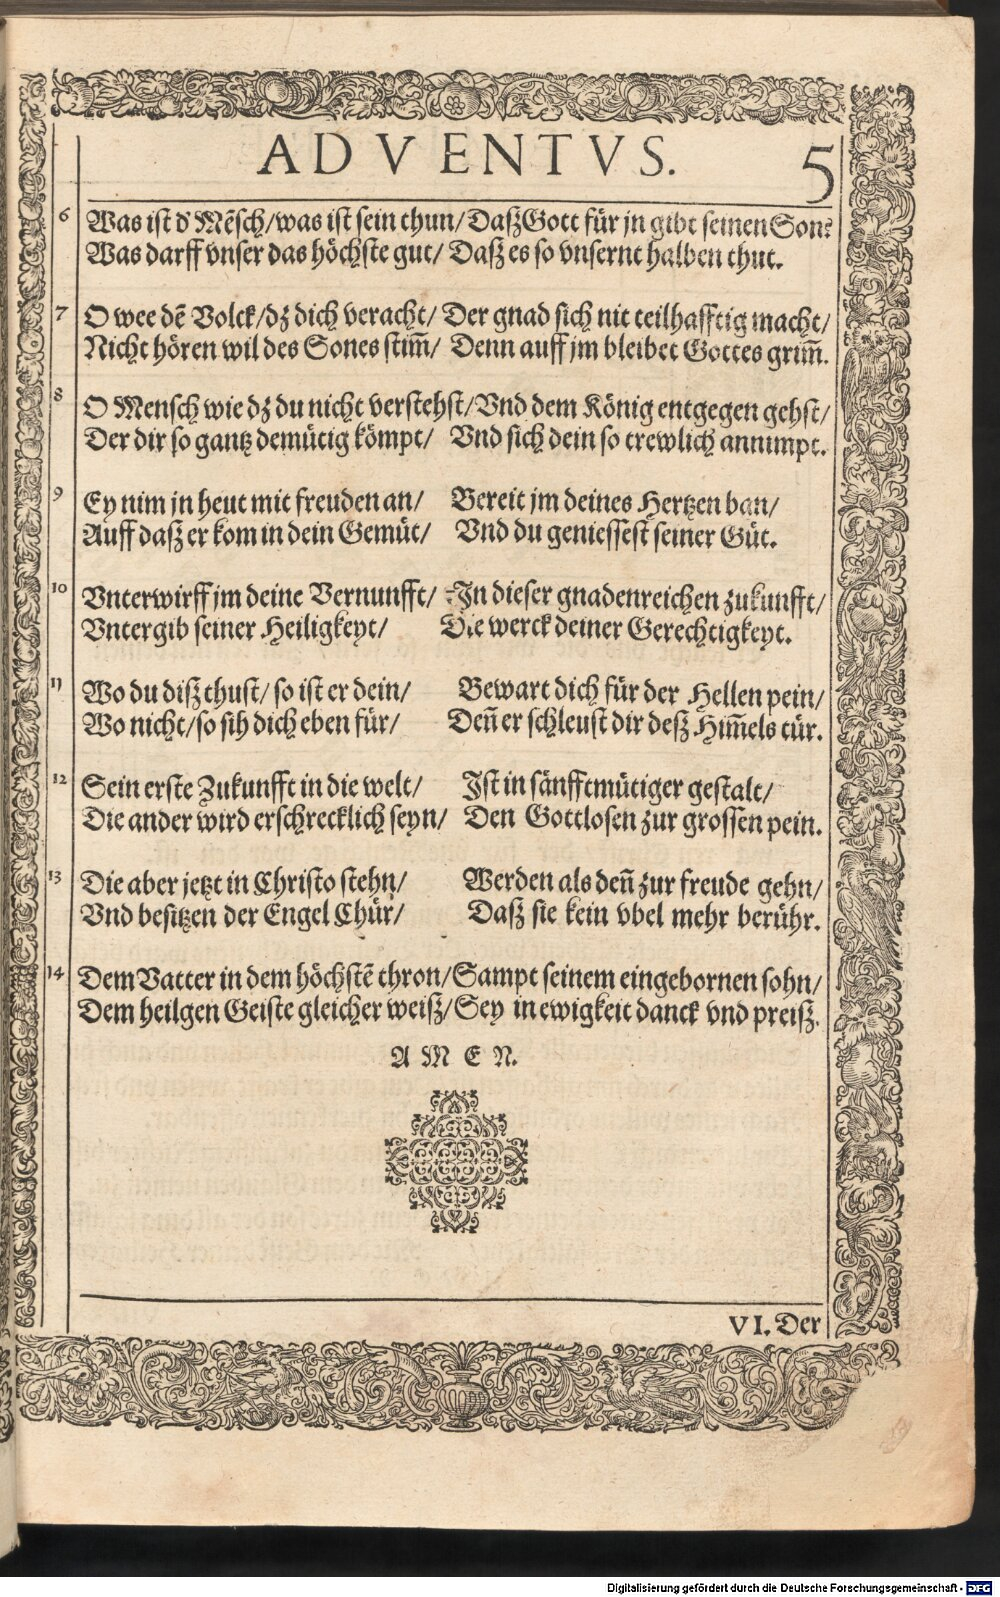 ADVENTVS. 5
6 Was ist d' Mẽsch/was ist sein thun/ Daß Gott für jn gibt seinen Son?
Was darff vnser das höchste gut/ Daß es so vnsernt halben thut.
7 O wee dẽ Volck/dz dich veracht/ Der gnad sich nit teilhafftig macht/
Nicht hören wil des Sones stim̃/ Denn auff jm bleibet Gottes grim̃.
8 O Mensch wie dz du nicht verstehst/ Vnd dem König entgegen gehst/
Der dir so gantz demütig kömpt/ Vnd sich dein so trewlich annimpt.
9 Ey nim jn heut mit freuden an/ Bereit jm deines Hertzen ban/
Auff daß er kom in dein Gemüt/ Vnd du geniessest seiner Güt.
10 Vnterwirff jm deine Vernunfft/ In dieser gnadenreichen zukunfft/
Vntergib seiner Heiligkeyt/ Die werck deiner Gerechtigkeyt.
11 Wo du diß thust/ so ist er dein/ Bewart dich für der Hellen pein/
Wo nicht/so sih dich eben für/ Deñ er schleust dir deß Him̃els tür.
12 Sein erste Zukunfft in die welt/ Ist in sänfftmütiger gestalt/
Die ander wird erschrecklich seyn/ Den Gottlosen zur grossen pein.
13 Die aber jetzt in Christo stehn/ Werden als deñ zur freude gehn/
Vnd besitzen der Engel Chür/ Daß sie kein vbel mehr berühr.
14 Dem Vatter in dem höchstẽ thron/ Sampt seinem eingebornen sohn/
Dem heilgen Geiste gleicher weiß/ Sey in ewigkeit danck vnd preiß.
A M E N.
VI. Der
Digitalisierung gefördert durch die Deutsche Forschungsgemeinschaft - DFG